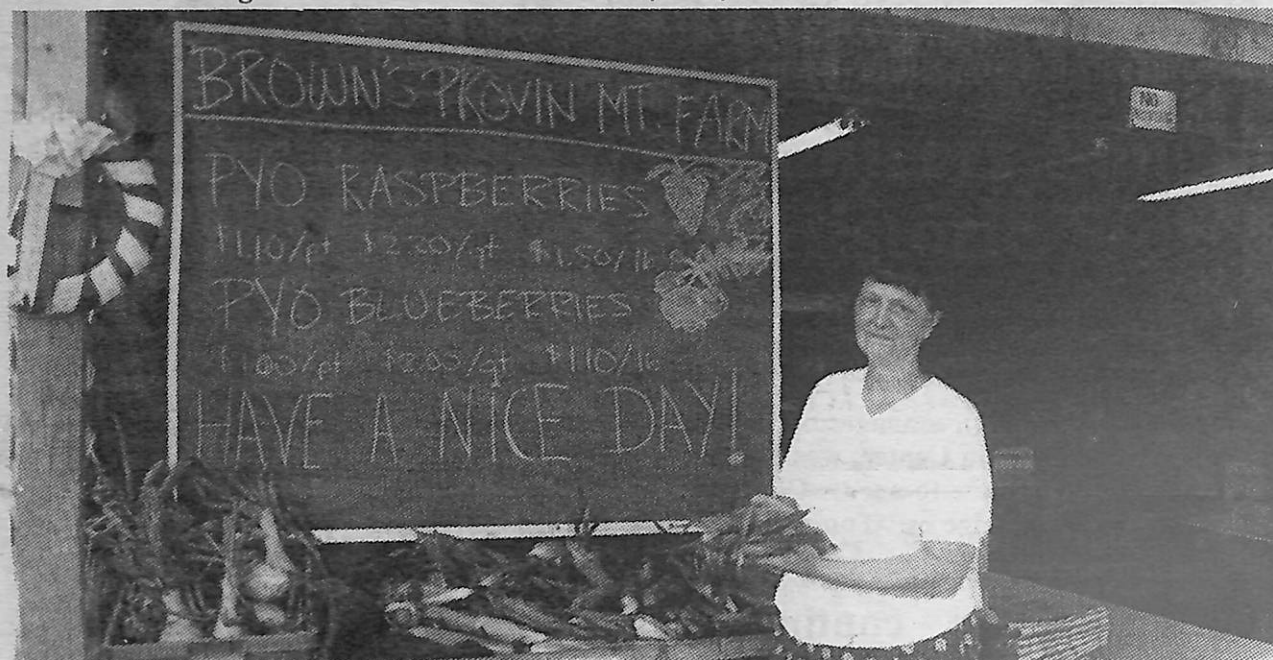 BROWN'S PROVIN MT. FARM
PYO RASPBERRIES
$1.10/pt $2.30/qt $1.50/lb
PYO BLUEBERRIES
$1.00/pt $2.05/qt $1.10/lb
HAVE A NICE DAY!